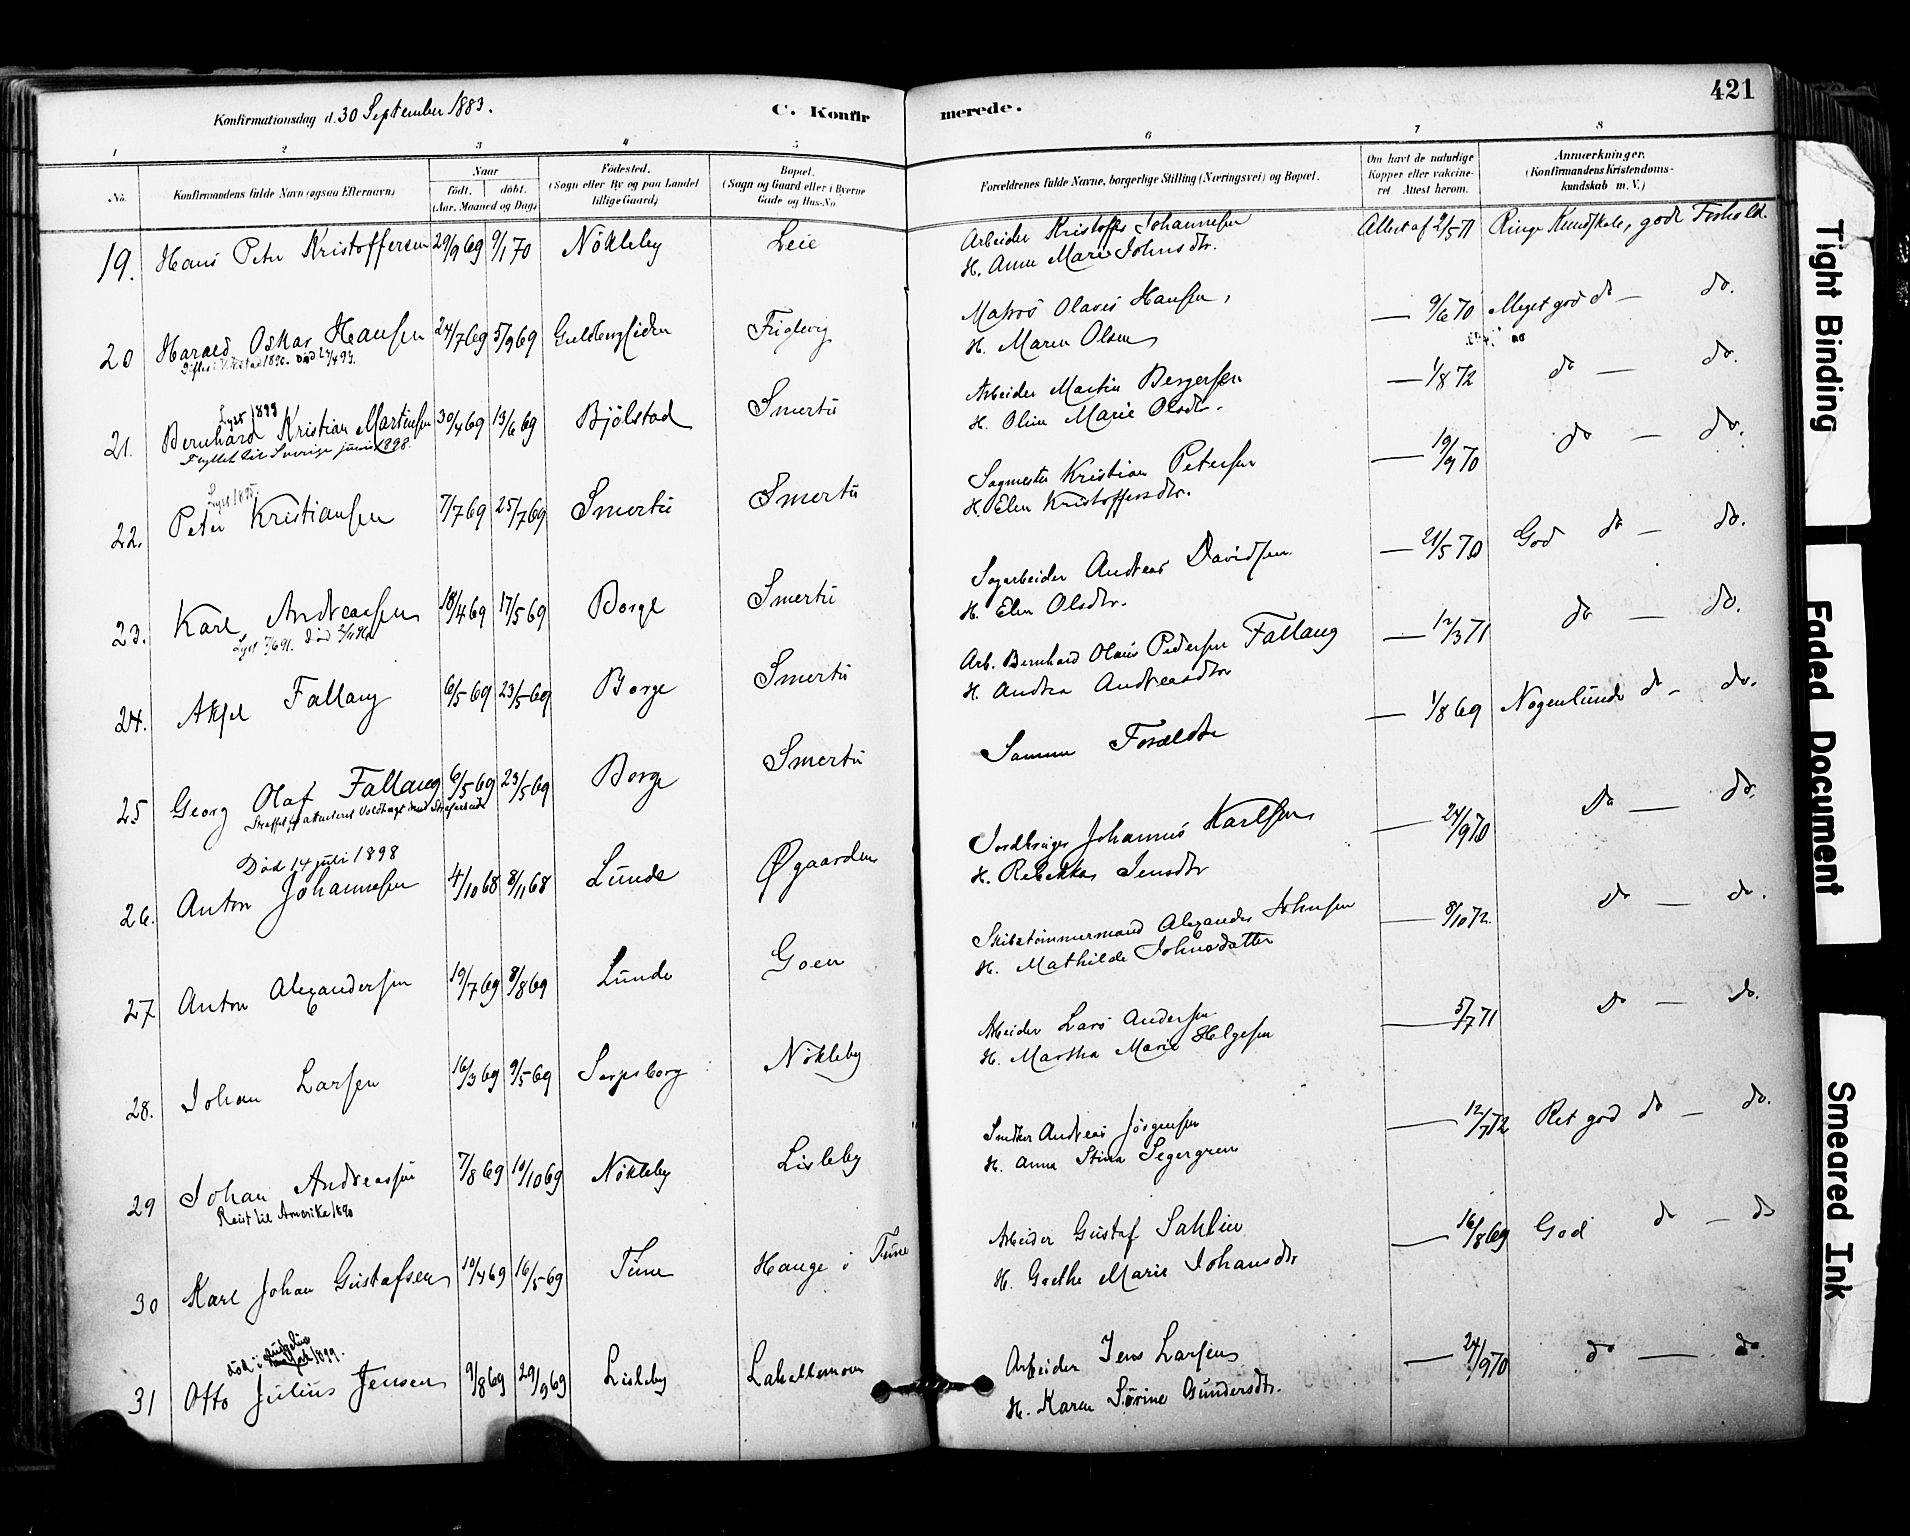 421
Konfirmationsdag d. 30 September 1883.
C. Konfir merede.
1 2 3 4 5 6 7 8
No.
Konfirmandens fulde Navn (ogsaa Efternavn)
Naar
födt. döbt.
(Aar, Maaned og Dag)
Födested.
(Sogn eller By og paa Landet
tillige Gaard)
Bopæl.
(Sogn og Gaard eller i Byerne
Gade og Hus-No.
Forældrenes fulde Navne, borgerlige Stilling (Næringsvei) og Bopæl.
Om havt de naturlige
Kopper eller vaccine-
ret Attest herom.
Anmærkninger.
(Konfirmandens Kristendoms-
kundskab m. V.)
19. Hans Peter Kristoffersen 29/9 69 9/1 70 Nökleby Leie Arbeider Kristoffer Johannesen Attest af 2/5 71 Ringe Kundskab, godt Forhold.
H. Anne Marie Johnsdtr.
20 Harald Oskar Hansen 24/7 69 5/9 69 Guldbergsiden Matros Olaves Hansen, — 9/6 70 Meget god do — do.
død 24/4 93.
H. Maren Olsen
Lyst 1899
21. Bernhard Kristian Martinsen 30/4 69 13/6 69 Bjölstad Smertu Arbeider Martin Bergersen — 1/8 72 do — do.
Flyttet til Sverige juni 1898.
H. Oline Marie Olsdtr.
Lyst 1895.
22. Peter Kristiansen 7/7 69 25/7 69 Smertu Smertu Sagmester Kristian Petersen — 19/9 70 do — do.
H. Elen Kristoffersdtr.
23. Karl Andreassen 18/4 69 17/5 69 Borge Smertu Sagarbeider Andreas Davidsen — 21/5 70 God do — do.
H. Elen Olsdtr.
24. Aksel Fallang 6/5 69 23/5 69 Borge Smertu Arb. Bernhard Olaus Pedersen Fallang — 12/3 71 do — do.
H. Andrea Andreasdtr
25 Georg Olaf Fallang 6/5 69 23/5 69 Borge Smertu Samme Forældre — 1/8 69 Nogenlunde do — do.
Död 14 juli 1898
26. Anton Johannesen 4/10 68 8/11 68 Lunde Øgaarden Jordbruger Johannes Karlsen — 24/9 70 Do — do.
H. Rebekka Jensdtr
27 Anton Alexandersen 19/7 69 8/8 69 Lunde Goen Skibstömmermand Alexander Johnsen — 8/10 72. do — do.
H. Mathilde Johnsdatter
28. Johan Larsen 16/3 69 9/5 69 Sarpsborg Nökleby Arbeider Lars Andersen — 5/7 71 Do — do.
H. Martha Marie Helgesen
29 Johan Andreassen 7/8 69 10/10 69 Nökleby Lisleby Snedker Andreas Jörgensen — 12/7 72 Ret god do — do.
Reist til Amerika 1890
H. Anna Stina Segergren
30 Karl Johan Gustafsen 10/4 69 16/5 69 Tune Hauge i Tune Arbeider Gustaf Sahlin — 16/8 69 God do — do
H. Grethe Marie Johansdtr
31 Otto Julius Jensen 9/8 69 29/9 69 Lisleby Labakkemoen Arbeider Jens Larsen — 24/9 70 do — do.
H. Karen Sörine Gundersdtr.
Tight Binding
Faded Document
Smeared Ink